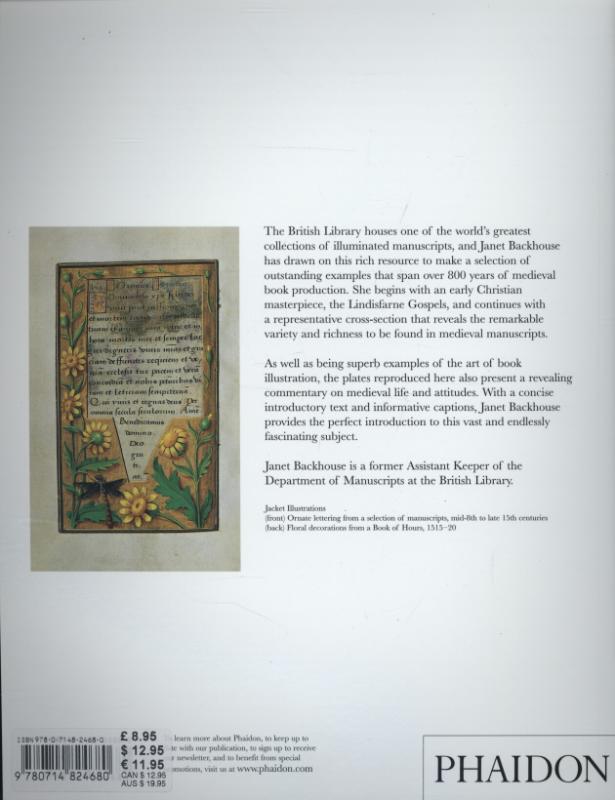 The British Library houses one of the world's greatest
collections of illuminated manuscripts, and Janet Backhouse
has drawn on this rich resource to make a selection of
outstanding examples that span over 800 years of medieval
book production. She begins with an early Christian
masterpiece, the Lindisfarne Gospels, and continues with
a representative cross-section that reveals the remarkable
variety and richness to be found in medieval manuscripts.
As well as being superb examples of the art of book
illustration, the plates reproduced here also present a revealing
commentary on medieval life and attitudes. With a concise
introductory text and informative captions, Janet Backhouse
provides the perfect introduction to this vast and endlessly
fascinating subject.
Janet Backhouse is a former Assistant Keeper of the
Department of Manuscripts at the British Library.
Jacket Illustrations
(front) Ornate lettering from a selection of manuscripts, mid-8th to late 15th centuries
(back) Floral decorations from a Book of Hours, 1515–20
Benedicamus
domino.
Deo
ISBN 978-0-7148-2468-0
9 780714 824680
£ 8.95
$ 12.95
€ 11.95
CAN $ 12.95
AUS $ 19.95
learn more about Phaidon, to keep up to
with our publication, to sign up to receive
newsletter, and to benefit from special
visit us at www.phaidon.com
PHAIDON